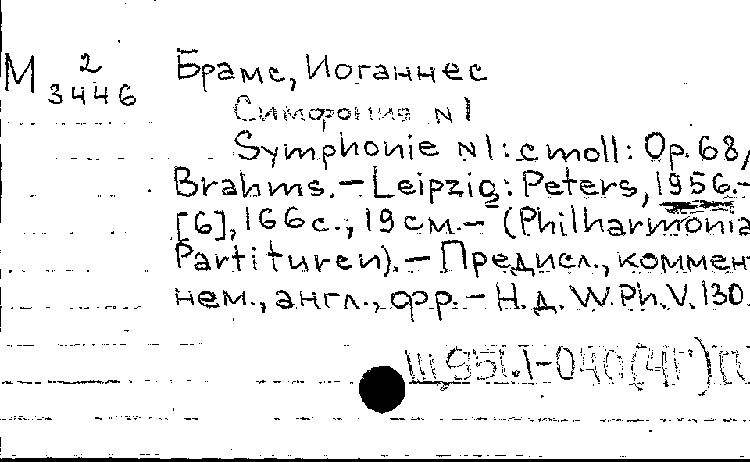 М 2
3446
Брамс, Иоганнес
Симфония N1
Symphonie N1: c moll: Op. 68/
Brahms. – Leipzig: Peters, 1956. –
[6], 166 с.; 19 см. – (Philharmonia
Partituren). – Предисл., коммент
нем., англ., фр. – Н.д. W.Ph.V. 130.
Щ951.1-040(4Г)